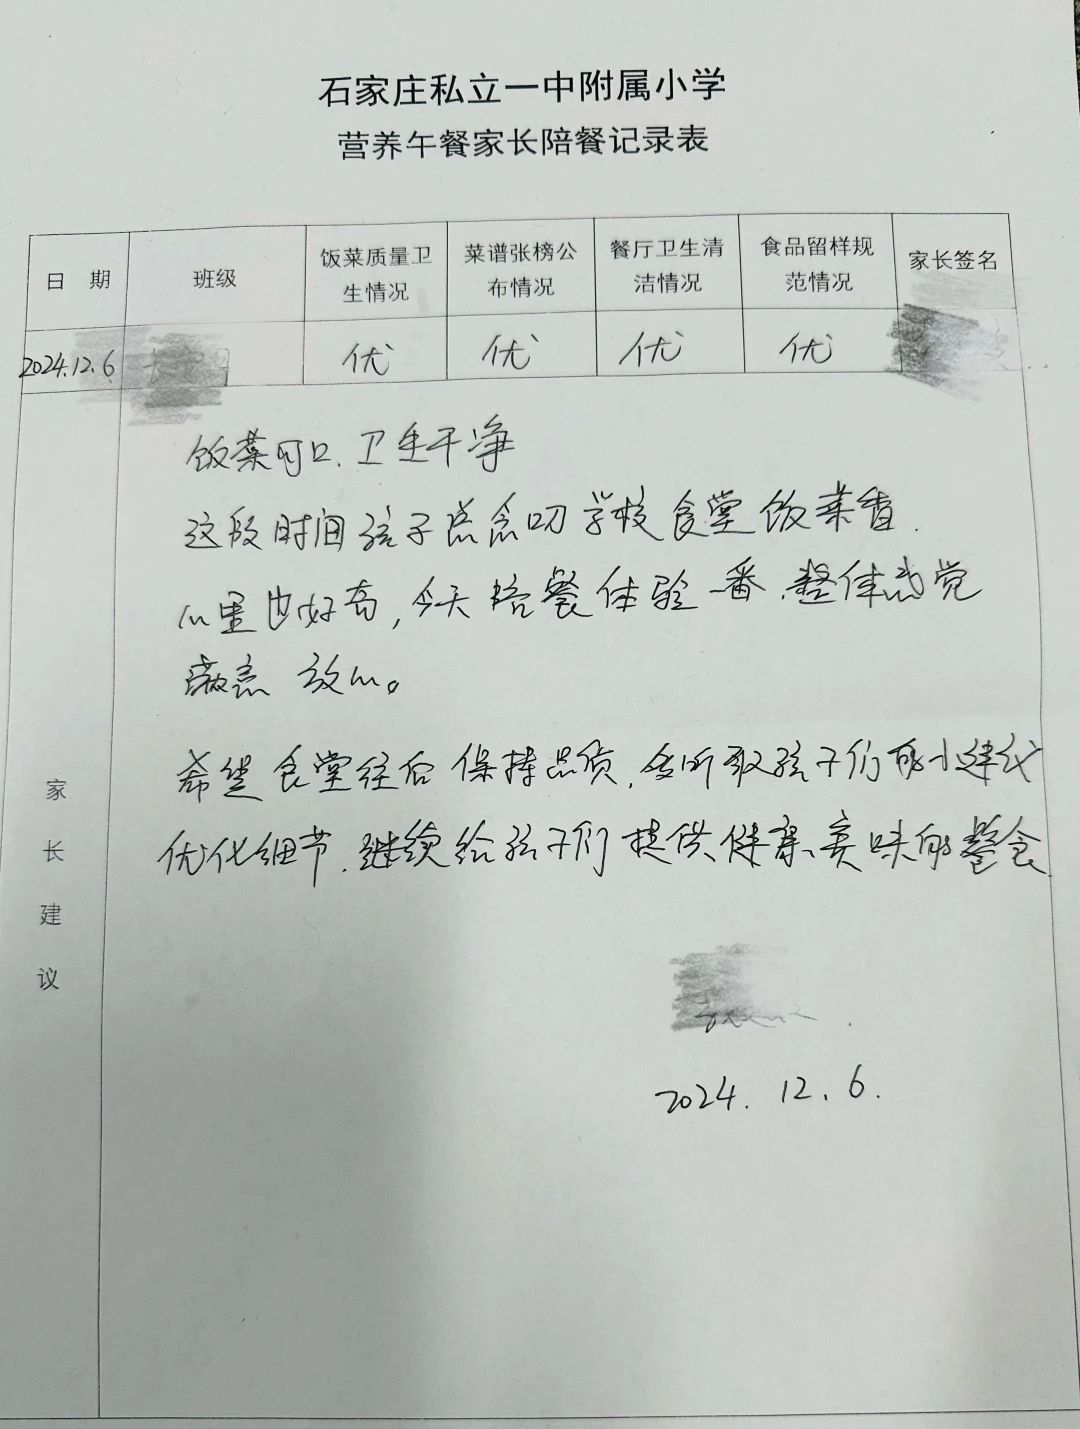 石家庄私立一中附属小学
营养午餐家长陪餐记录表
日 期 班级 饭菜质量卫生情况 菜谱张榜公布情况 餐厅卫生清洁情况 食品留样规范情况 家长签名
2024.12.6 优 优 优 优
家长建议
饭菜可口、卫生干净
这段时间孩子总念叨学校食堂饭菜香.
心里也好奇,今天陪餐体验一番,整体感觉
满意 放心。
希望食堂往后保持品质,多听取孩子们的小建议
优化细节.继续给孩子们提供健康、美味的餐食
2024.12.6.